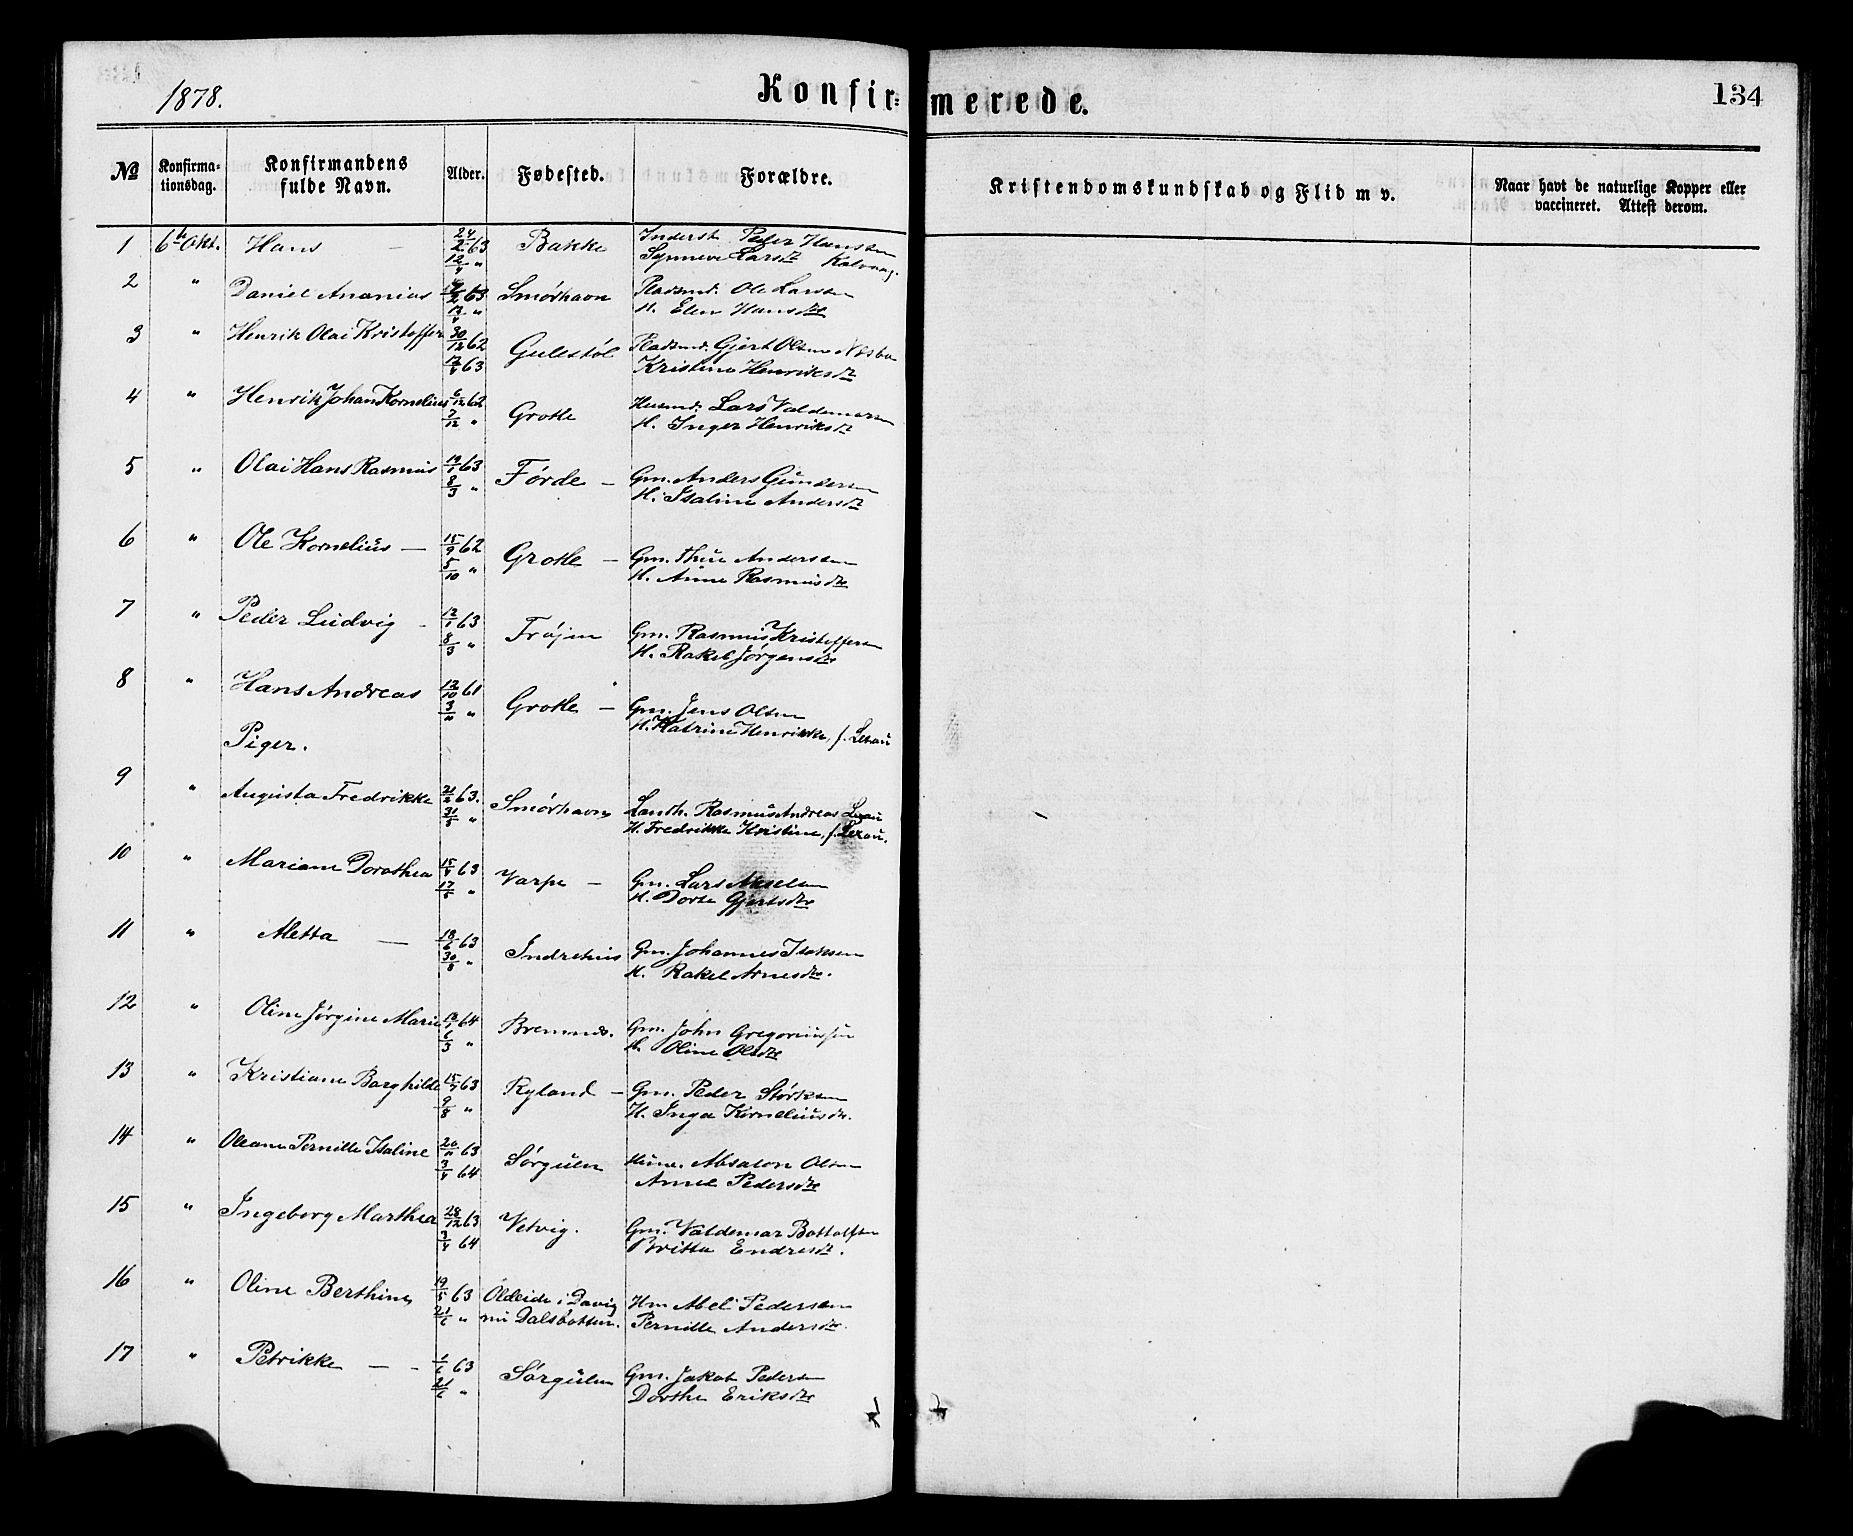 1878.
Konfir=
merede.
134
№
Konfirma-
tionsdag.
Konfirmandens
fulde Navn.
Alder.
Fødested.
Forældre.
Kristendomskundskab og Flid m v.
Naar havt de naturlige Kopper eller
vaccineret. Attest derom.
1 6te Okt. Hans — 24/2 63 Bakke Inderst Peder Hansen
12/4 " Synneve Larsdtr Kalvaag.
2 " Daniel Ananias /2 63 Smørhavn Pladsmd. Ole Larsen
12/4 " H. Elen Hansdtr
3 " Henrik Olai Kristoffer 30/12 62 Gulestøl Pladsmd. Gjert Olsen Nesbø
12/4 63 Kristine Henriksdtr
4 " Henrik Johan Kornelius 6/12 62 Grotle Husmd. Lars Valdemarsen
7/12 " H. Inger Henriksdtr
5 " Olai Hans Rasmus 19/1 63 Førde — Gm. Anders Gundersen
8/3 " H. Isaline Andersdtr
6 " Ole Kornelius — 15/9 62 Grotle — Gm. Thue Andersen
5/10 " H. Anne Rasmusdtr
7 " Peder Ludvig - 12/1 63 Frøjen Gm. Rasmus Kristoffersen
8/3 " H. Rakel Jørgensdtr
8 " Hans Andreas 12/10 61 Grotle — Gm. Jens Olsen
3/11 " H. Katrine Henrikke, f. Lexau
Piger.
9 " Augusta Fredrikke 21/2 63. Smørhavn Landh. Rasmus Andreas Lexau
31/5 " H. Fredrikke Kristine, f. Lexau.
10 " Mariane Dorothea 15/4 63 Varpe — Gm. Lars Akselsen
17/5 " H. Dorte Gjertsdtr
11 " Aletta — 18/6 63 Indrehus Gm. Johannes Isaksen
30/8 " H. Rakel Arnesdtr.
12 " Oline Jørgine Marie 19/1 64 Bremnes. Gm. John Gregoriussen
6/3 " H. Oline Olsdtr
13 " Kristiane Borghilde 15/7 63 Ryland — Gm. Peder Størksen
9/8 " H. Inga Korneliusdtr.
14 " Oleane Pernille Isaline 20/11 63 Sørgulen Husm. Absalon Olsen
3/4 64 Anne Pedersdtr
15 " Ingeborg Marthea 28/12 63 Vetvig. Gm. Valdemar Bottolfsen
3/4 64 Britta Endresdtr.
16 " Oline Berthine 19/5 63 Oldeide i Davig Hm Abel Pedersen
21/6 " nu Dalsbotten. Pernille Andersdtr.
17 " Petrikke — - 1/6 63 Sørgulen Gm. Jakob Pedersen
21/6 " Dorthe Eriksdtr